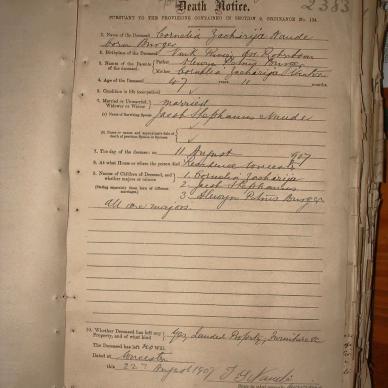 2383
Death Notice.
PURSUANT TO THE PROVISIONS CONTAINED IN SECTION 9, ORDINANCE No. 104.
1. Name of the Deceased Cornelia Zacharija Naude
born Burger
2. Birthplace of the Deceased
3. Names of the Parents of the deceased Father Alewyn Petrus Burger
Mother Cornelia Zacharija
4. Age of the Deceased 47 years 11 months
5. Condition in life (occupation)
6. Married or Unmarried, Widower or Widow married
(a) Name of Surviving Spouse Jacob Stephanus Naude
(b) Name or names and approximate date of death of previous Spouse or Spouses
7. The day of the decease 11 August 1907
8. At what House or where the person died Residence Worcester
9. Names of Children of Deceased, and whether majors or minors 1. Cornelia Zacharija
2 Jacob Stephanus
(Stating separately those born of different marriages.) 3. Alewyn Petrus Burger
All are majors.
10. Whether Deceased has left any Property, and of what kind Yes, Landed Property, Furniture &c
The Deceased has left no Will
Dated at Worcester
this 22nd August 1907 Naude